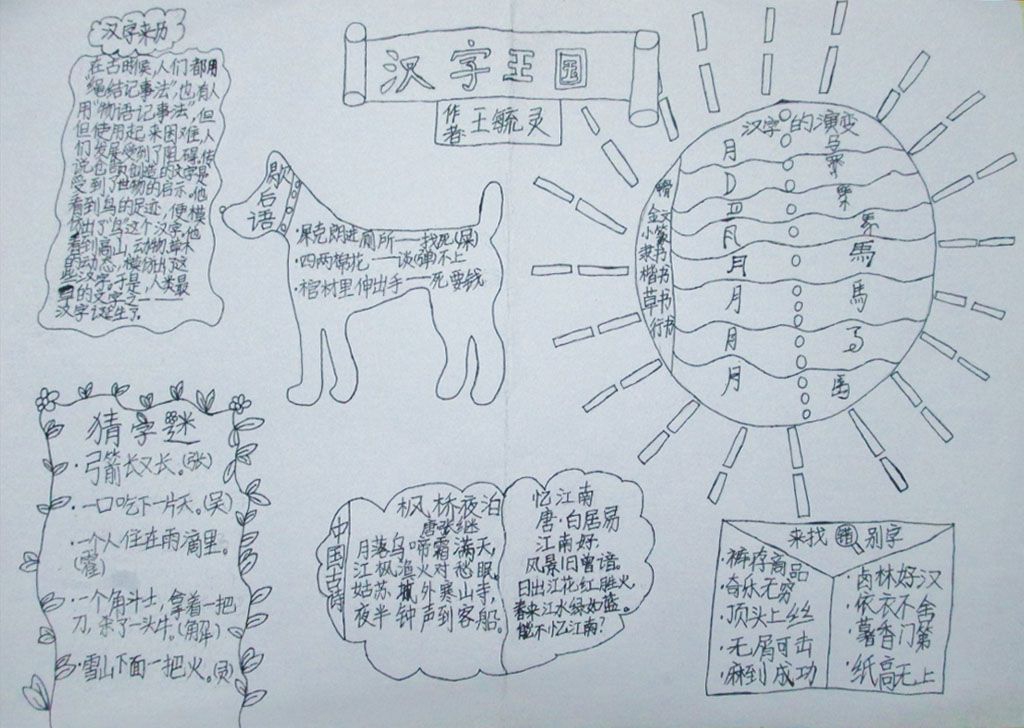 汉字王国
作者:王毓灵
汉字来历
在古时候,人们都用
"绳结记事法",也有人
用"物语记事法",但
但使用起来困难,人
们发展受到了阻碍。传
说仓颉创造的文字是
受到了世物的启示。他
看到鸟的足迹,便模
仿出了"鸟"这个汉字,他
看到高山、动物、草木
的动态,模仿出了这
些汉字,于是,人类最
早的文字之一——
汉字诞生了。
歇后语
·屎壳郎进厕所——找死(屎)
·四两棉花——谈(弹)不上
·棺材里伸出手——死要钱
汉字的演变
金文
小篆
隶书
楷书
草书
行书
月
月
月
月
月
月
馬
馬
马
猜字谜
·弓箭长又长。(张)
·一口吃下一片天。(吴)
·一个人住在雨滴里。
·一个角斗士,拿着一把
刀,杀了一头牛。(解)
·雪山下面一把火。(灵)
中国古诗
枫桥夜泊
唐 张继
月落乌啼霜满天,
江枫渔火对愁眠。
姑苏城外寒山寺,
夜半钟声到客船。
忆江南
唐·白居易
江南好
风景旧曾谙。
日出江花红胜火
春来江水绿如蓝。
能不忆江南?
来找错别字
·裤存商品
·奇乐无穷
·顶头上丝
·无屑可击
·麻到成功
·卤林好汉
·依衣不舍
·薯香门第
·纸高无上